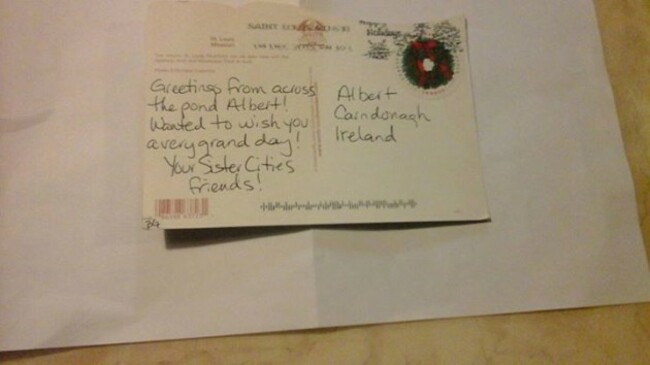 SAINT LOUIS
St. Louis
Missouri
Happy
Holidays
Greetings from across
the pond Albert!
Wanted to wish you
a very grand day!
Your Sister Cities
friends!
Albert
Carndonagh
Ireland